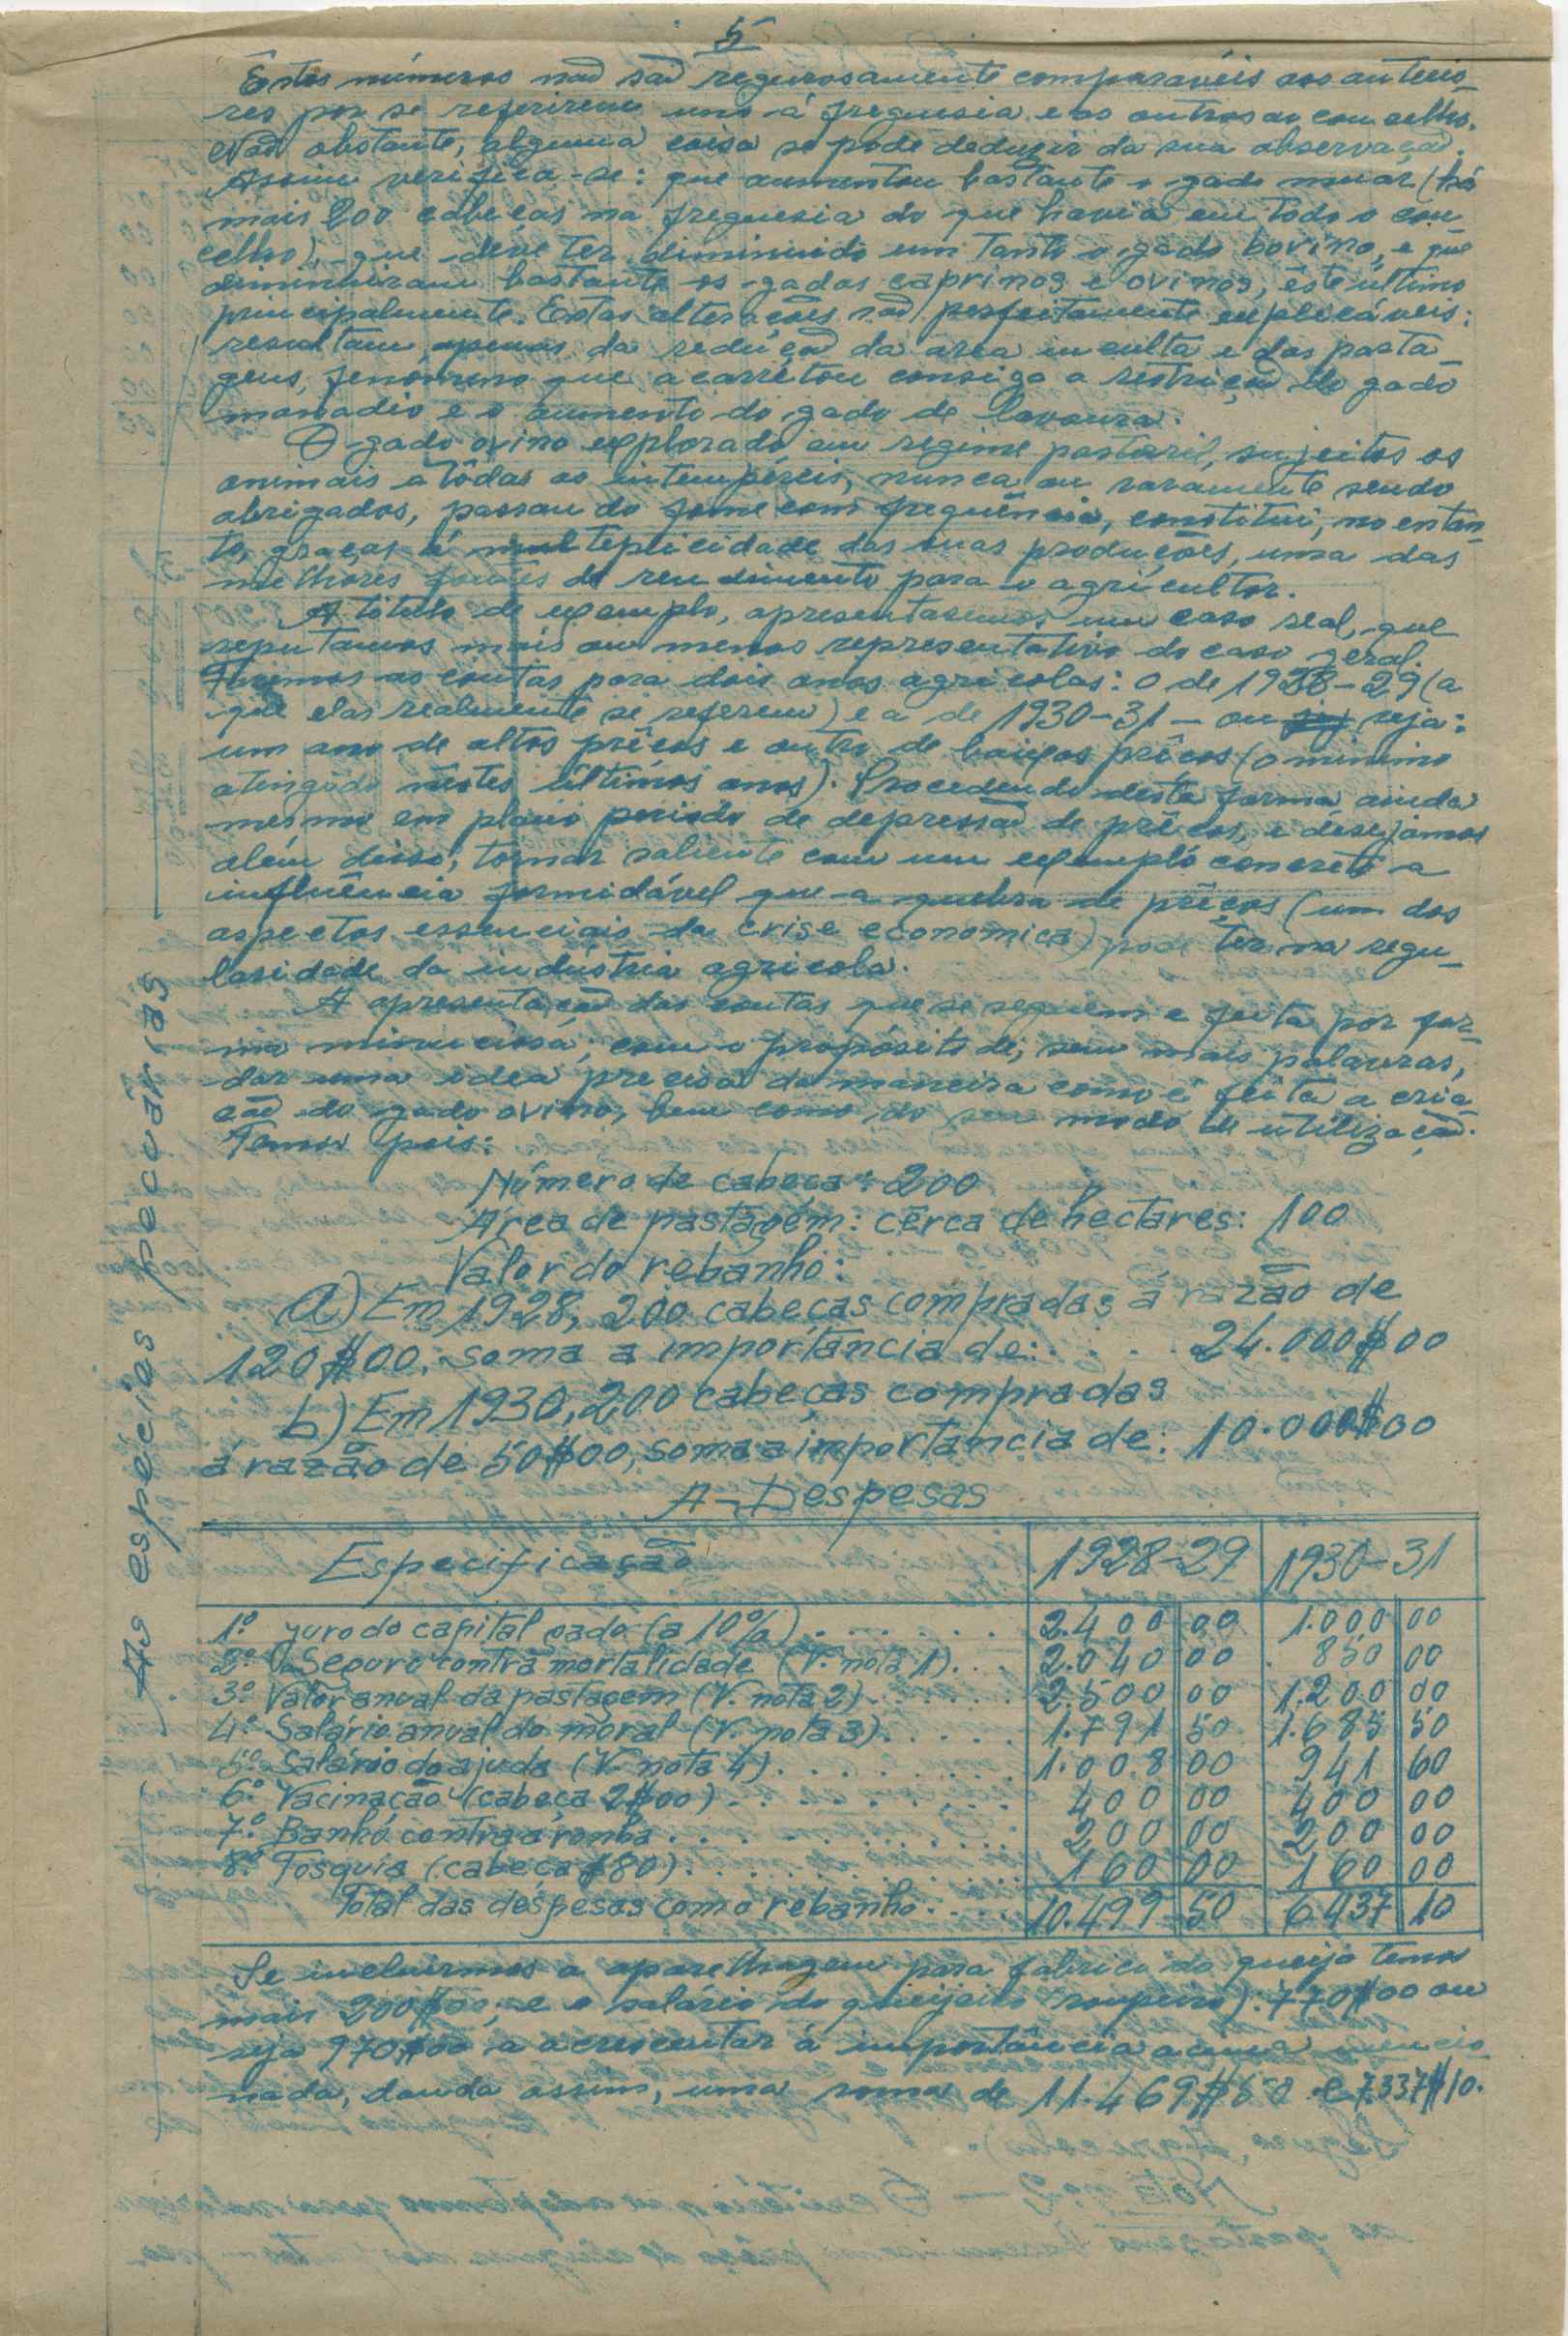 5
Êstes números não são regurosamente comparavéis aos anterio-
res por se referirem uns á freguesia e os outros ao concelho.
Não obstante, alguma coisa se pode deduzir da sua observação.
Assim verifica-se: que aumentou bastante o gado muar (há
mais 200 cabeças na freguesia do que havia em todo o con-
celho), que deve ter diminuido um tanto o gado bovino, e que
diminuiram bastante os gados caprinos e ovinos, êste ultimo
principalmente. Estas alterações são perfeitamente explicáveis:
resultam apenas da redução da area inculta e das pasta-
gens, fenomeno que acarretou consigo a restrição do gado
manadio e o aumento do gado de lavoura.
O gado ovino explorado em regime pastoril, sujeitos os
animais a tôdas as intempéreis, nunca ou raramente sendo
abrigados, passando fome com frequência, constitui, no entan-
to, graças á multeplicidade das suas produções, uma das
melhores fontes de rendimento para o agricultor.
A titulo de exemplo, apresentaremos um caso real, que
reputamos mais ou menos representativo do caso geral.
Fizemos as contas para dois anos agricolas: o de 1928-29 (a
que elas realmente se referem) e a de 1930-31 - ou seja:
um ano de altos prêços e outro de baixos prêços (o minimo
atingido nestes últimos anos). Procedendo desta forma ainda
mesmo em pleno periodo de depressão de prêços, e desejamos
além disso, tornar saliente com um exemplo concreto a
influência formidável que a quebra de prêços (um dos
aspectos essenciais da crise economica) pode ter na regu-
laridade da indústria agricola.
A apresentação das contas que se seguem e feita por for-
ma minuciosa, com o propósito de, sem mais palavras,
dar uma idea precisa da maneira como é feita a cria-
ção do gado ovino, bem como do seu modo de utilização.
Temos pois:
Número de cabeça: 200
Área de pastagem: cêrca de hectares: 100
Valor do rebanho:
a) Em 1928, 200 cabeças compradas á razão de
120$00, soma a importância de: . . . . 24.000$00
b) Em 1930, 200 cabeças compradas
á razão de 50$00, soma a importancia de: 10.000$00
A - Despesas
Especificação 1928-29 1930-31
1.º juro do capital gado (a 10%) . . . . . . 2.400 00 1.000 00
2.º Seguro contra mortalidade (V. nota 1). . . 2.040 00 850 00
3.º Valor anual da pastagem (V. nota 2) . . . . . 2.500 00 1.200 00
4.º Salário anual do moral (V. nota 3) . . . . . 1.791 50 1.685 50
5.º Salário do ajuda (V. nota 4) . . . . . . . . 1.008 00 941 60
6.º Vacinação (cabeça 2$00) . . . . . . . . 400 00 400 00
7.º Banho contra a ronha . . . . . . . . . 200 00 200 00
8.º Tosquia (cabeça $80) . . . . . . . . . . 160 00 160 00
Total das despesas com o rebanho . . . . 10.499 50 6437 10
Se incluirmos a aparelhagem para fabrico do queijo temos
mais 200$00; e o salário do queijeiro roupeiro). 770$00 ou
seja 970$00 a acrescentar á importância acima mencio-
nada, dando assim, uma soma de 11.469$50 e 7.337$10.
As espécies pecuárias